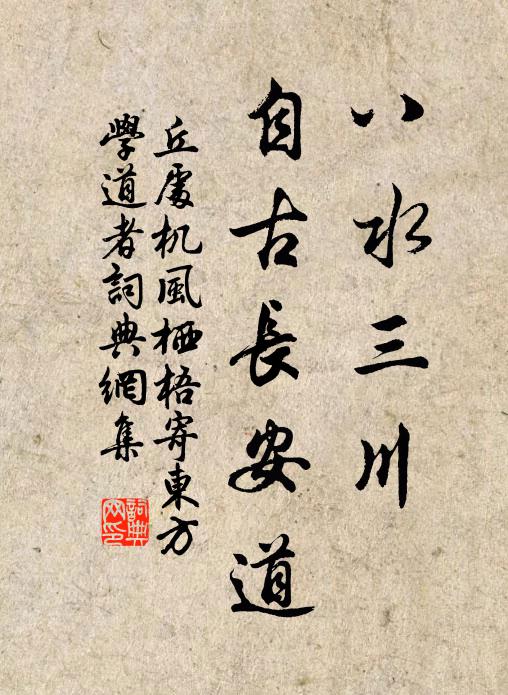 八水三川
自古長安道
丘處机風栖梧寄東方
學道者詞典網集
詞典
网印